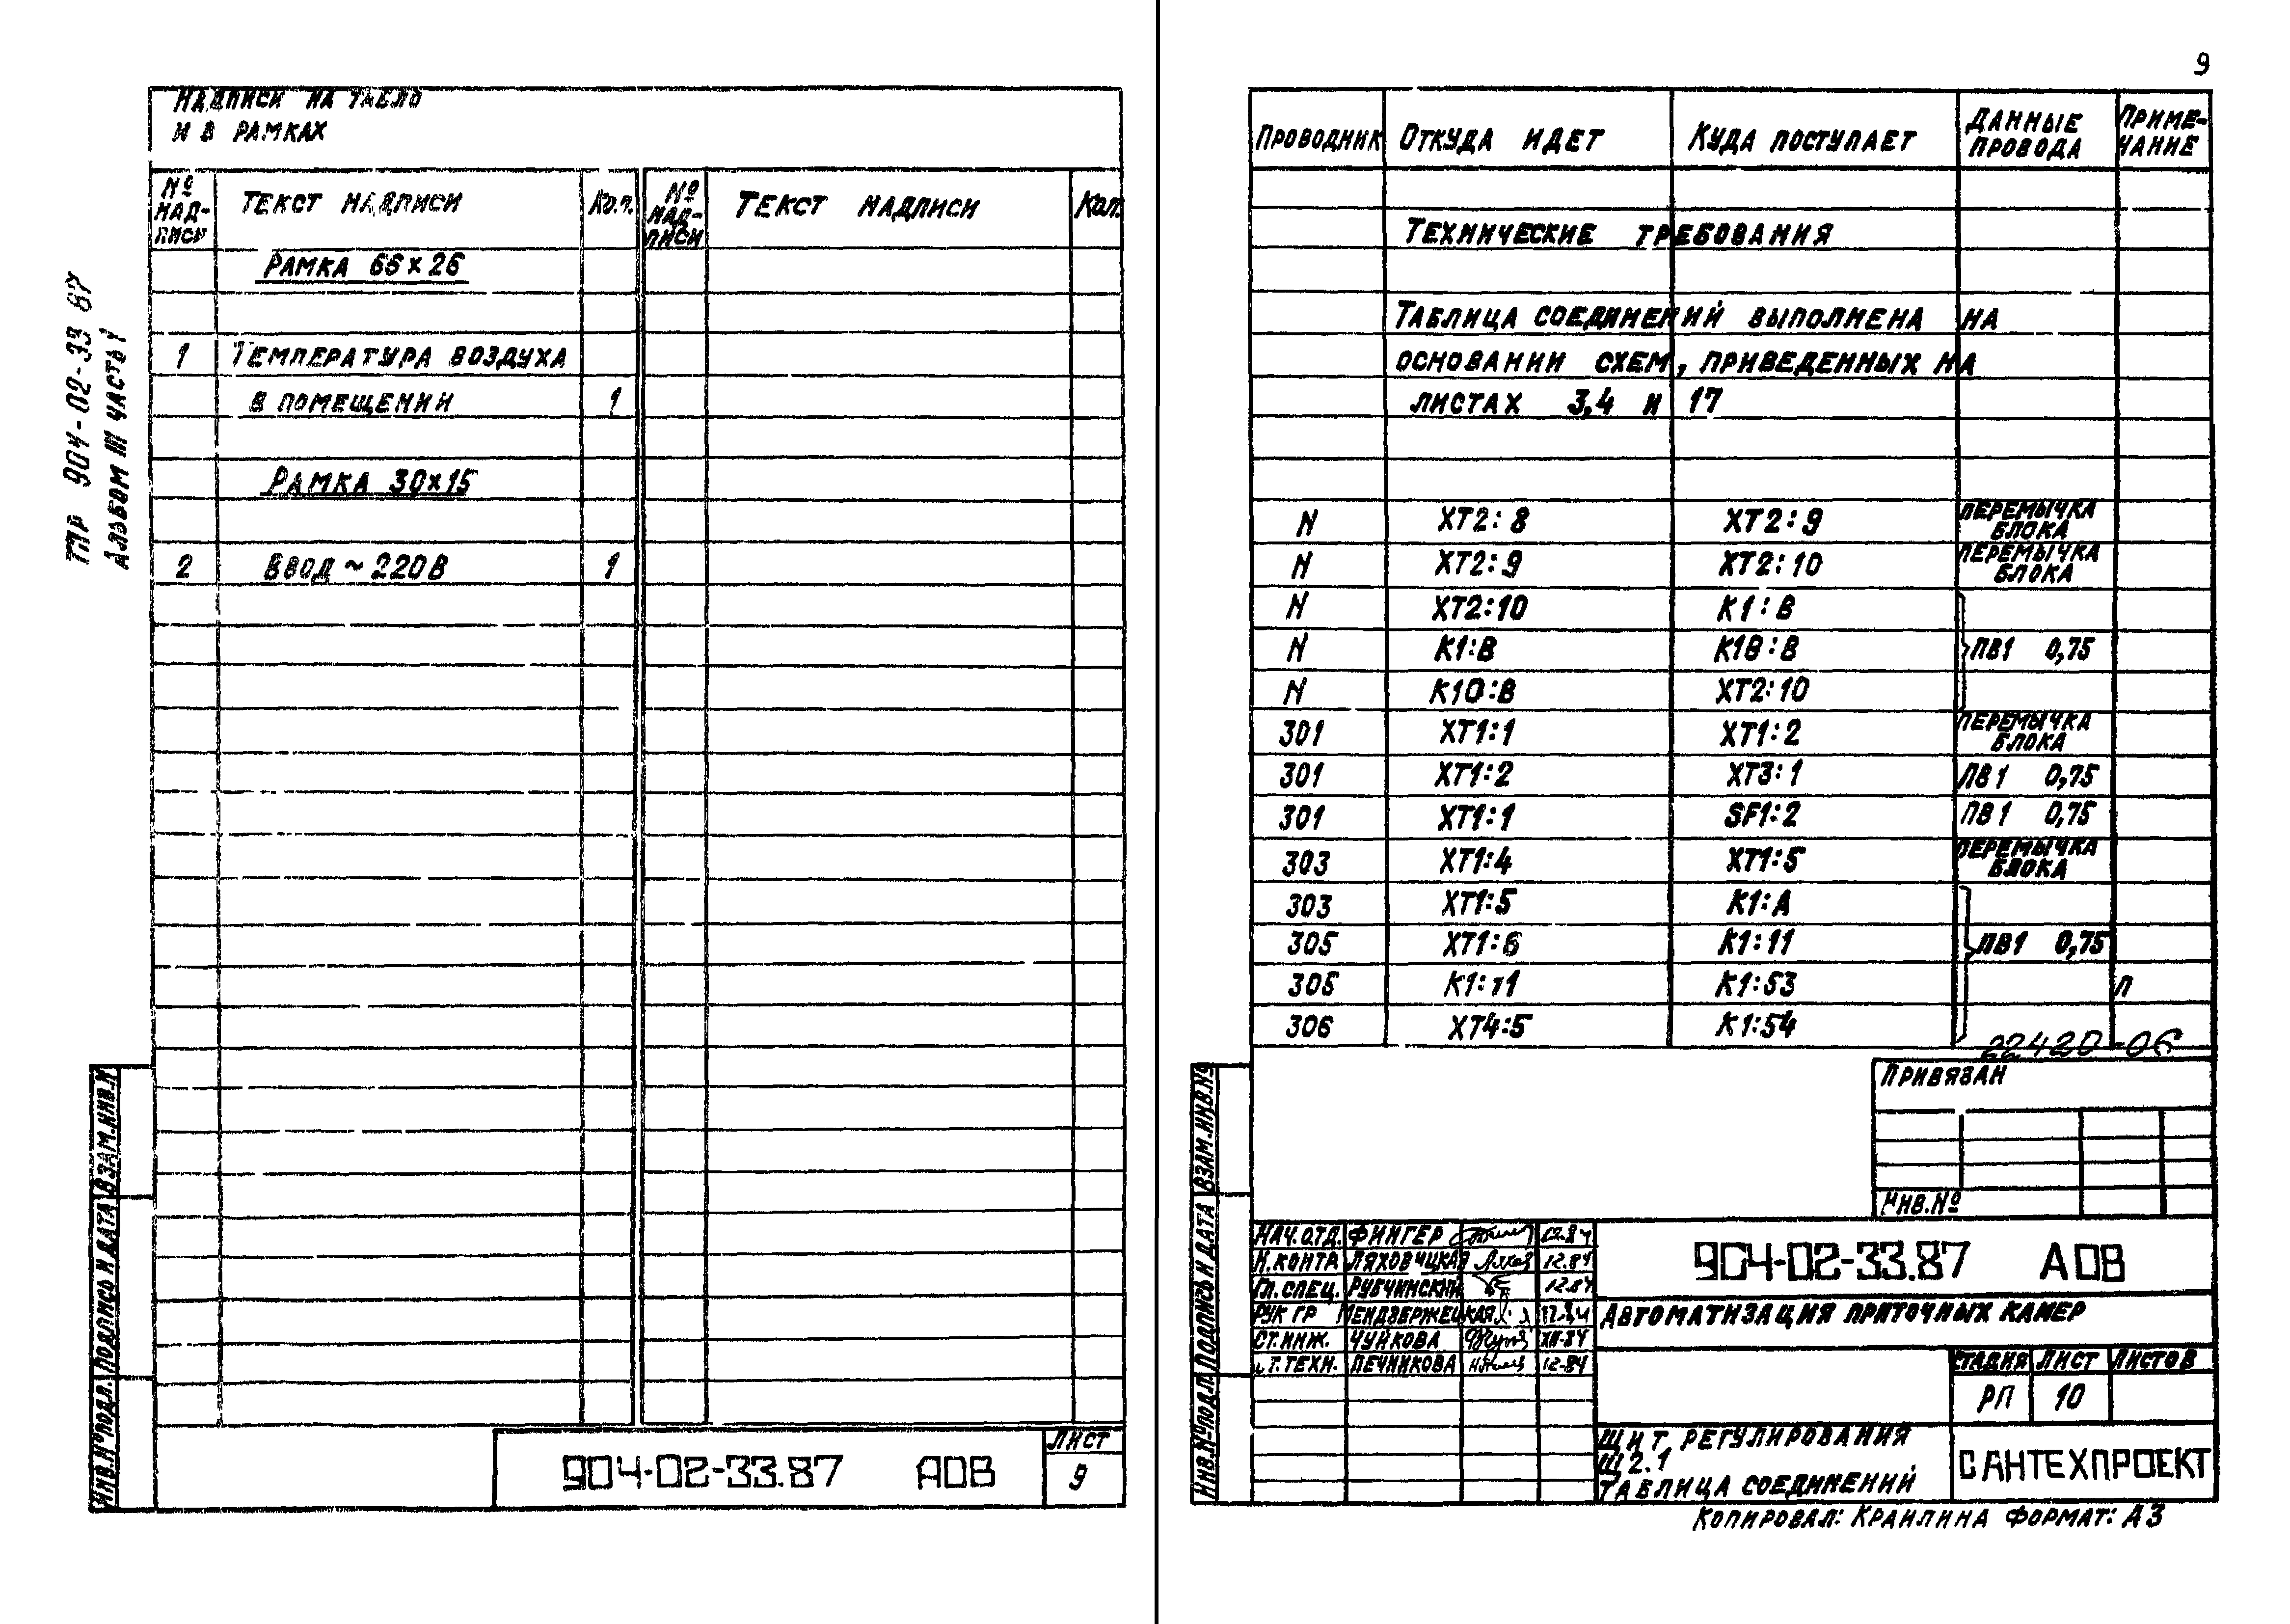 9
ТПР 904-02-33 87
Альбом III часть 1
Надписи на табло
и в рамках
№ надписи Текст надписи Кол. № надписи Текст надписи Кол.
Рамка 66×26
1 Температура воздуха
в помещении 1
Рамка 30×15
2 Ввод ~220В 1
Взам. инв. №
Подпись и дата
Инв. № подл.
904-02-33.87 АОВ
Лист
9
Проводник Откуда идет Куда поступает Данные провода Примечание
Технические требования
Таблица соединений выполнена на
основании схем, приведенных на
листах 3,4 и 17
N ХТ2:8 ХТ2:9 Перемычка блока
N ХТ2:9 ХТ2:10 Перемычка блока
N ХТ2:10 К1:В
N К1:В К10:В ПВ1 0,75
N К10:В ХТ2:10
301 ХТ1:1 ХТ1:2 Перемычка блока
301 ХТ1:2 ХТ3:1 ПВ1 0,75
301 ХТ1:1 SF1:2 ПВ1 0,75
303 ХТ1:4 ХТ1:5 Перемычка блока
303 ХТ1:5 К1:А
305 ХТ1:6 К1:11 ПВ1 0,75
305 К1:11 К1:53 П
306 ХТ4:5 К1:54
22420-06
Привязан
Инв. №
Взам. инв. №
Подпись и дата
Инв. № подл.
Нач. отд. Фингер 12.84
Н. контр Ляховицкая 12.84
Гл. спец. Рубчинский 12.84
Рук гр Мендзержецкая 12.84
Ст. инж. Чуйкова XII-84
Ст. техн. Печникова 12-84
904-02-33.87 АОВ
Автоматизация приточных камер
Стадия Лист Листов
РП 10
Щит регулирования
Щ2.1
Таблица соединений
САНТЕХПРОЕКТ
Копировал: Краилина Формат: А3